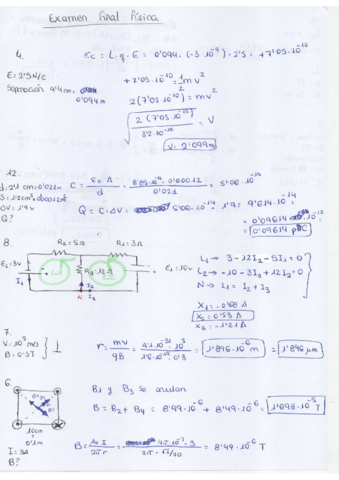 Examen final física
4.
Ec = L·q·E = 0'094·(-3·10⁻⁹)·2'5 = +7'05·10⁻¹⁰
E = 2'5N/C
Separación 9'4cm
0'094m
+7'05·10⁻¹⁰ = 1/2 mv²
2(7'05·10⁻¹⁰) = mv²
√(2(7'05·10⁻¹⁰) / 3'2·10⁻¹⁰) = V
V = 2'099m
12.
C = ε₀·A / d = 8'85·10⁻¹²·0'00012 / 0'021 = 5'06·10⁻¹⁴
ΔV = 1'9v
Q?
Q = C·ΔV = 5'06·10⁻¹⁴·1'9 = 9'614·10⁻¹⁴
0'09614·10⁻¹²
0'09614 pC
8.
R₂ = 5Ω
R₁ = 3Ω
E₂ = 3v
R₃ = 12Ω
E₁ = 10v
I₁
I₂
I₃
N
L₁ → 3 - 12I₂ - 5I₁ = 0
L₂ → -10 - 3I₃ + 12I₂ = 0
N → I₁ = I₂ + I₃
X₁ = -0'68A
X₂ = 0'53A
X₃ = -1'21A
7.
V = 10³ m/s
B = 0'3T
⊥
r = mv / qB = 9'1·10⁻³¹·10³ / 1'6·10⁻¹⁹·0'3 = 1'896·10⁻⁸ m = 1'896 μm
6.
B₁ y B₃ se anulan
B = B₂ + B₄ = 8'49·10⁻⁶ + 8'49·10⁻⁶ = 1'698·10⁻⁵ T
10cm
0'1m
I = 3A
B?
B = μ₀ I / 2πr = 4π·10⁻⁷·3 / 2π·√2/20 = 8'49·10⁻⁶ T